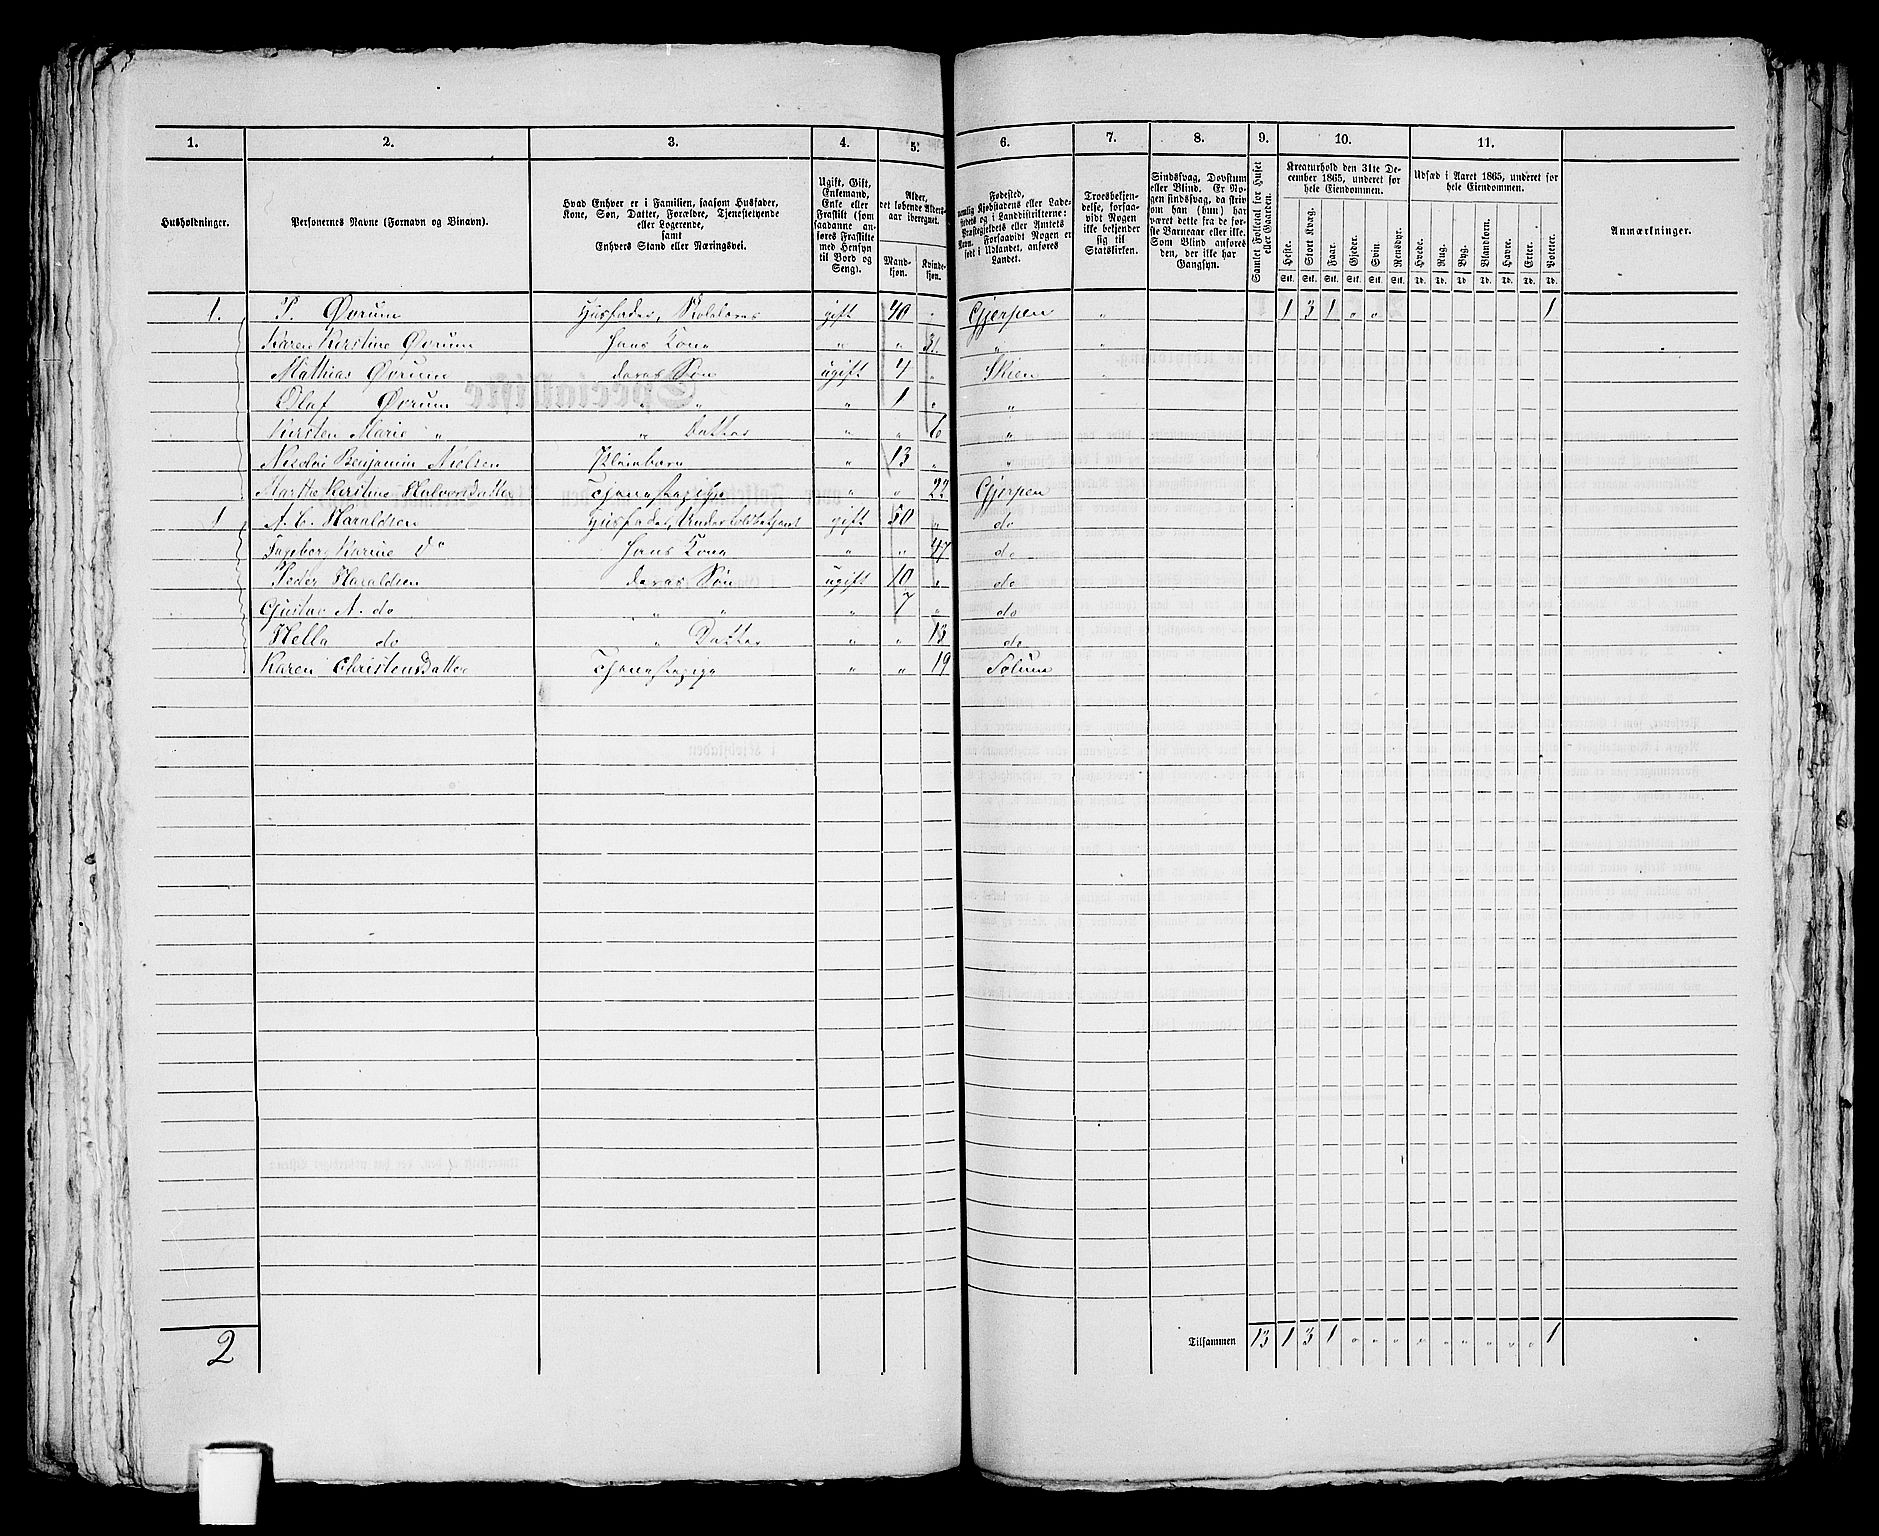 1. 2. 3. 4. 5. 6. 7. 8. 9. 10. 11.
Husholdninger.
Personernes Navne (Fornavn og Binavn).
Hvad Enhver er i Familien, saasom Husfader,
Kone, Søn, Datter, Forældre, Tjenestetyende
eller Logerende,
samt
Enhvers Stand eller Næringsvei.
Ugift, Gift,
Enkemand,
Enke eller
Fraskilt (som
saadanne an-
føres Fraskilte
med Hensyn
til Bord og
Seng).
Alder,
det løbende Alders-
aar iberegnet.
Mand-
kjøn.
Kvinde-
kjøn.
Fødested,
nemlig Kjøbstadens eller Lade-
stedets og i Landdistrikterne:
Præstegjeldets eller Amtets
Navn. Forsaavidt Nogen er
født i Udlandet, anføres
Landet.
Troesbekjen-
delse, forsaa-
vidt Nogen
ikke bekjender
sig til
Statskirken.
Sindssvag, Døvstum
eller Blind. Er No-
gen sindssvag, da skriv
om han (hun) har
været dette fra de før-
ste Barneaar eller ikke.
Som Blind anføres
den, der ikke har
Gangsyn.
Samlet Folketal for Huset
eller Gaarden.
Kreaturhold den 31te De-
cember 1865, underet for
hele Eiendommen.
Heste. Stort Kvæg. Faar. Gjeder. Svin. Rensdyr.
Stk. Stk. Stk. Stk. Stk. Stk.
Udsæd i Aaret 1865, underet for
hele Eiendommen.
Hvede. Rug. Byg. Blandkorn. Havre. Erter. Poteter.
Td. Td. Td. Td. Td. Td. Td.
Anmærkninger.
1. P. Øvrum Husfader, gift 40 " Gjerpen " 1 3 1 " " 1
Karen Kirstine Øvrum Hans Kone " " 31 " "
Mathias Øvrum deres Søn ugift 4 " Skien
Olaf Øvrum " " " 1 "
Kirsten Marie " " Datter " " 6 "
Nicolai Benjamin Nielsen Pleiebarn " 13 " "
Marthe Kirstine Halvorsdatter Tjenestepige " " 22 Gjerpen
1 A. C. Haraldsen Husfader, gift 50 " do
Ingeborg Karine do Hans Kone " " 47 do
Peder Haraldsen deres Søn ugift 10 " do
Gustav A. do " " " 7 " do
Hella do " Datter " " 13 do
Karen Christensdatter Tjenestepige " " 19 Solum
2
Tilsammen 13 1 3 1 " " " " " " " " " 1